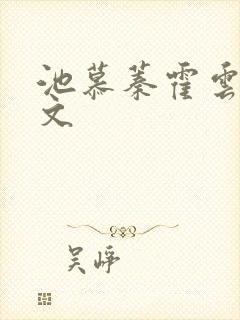 池慕蓁霍雲
文
吴峥